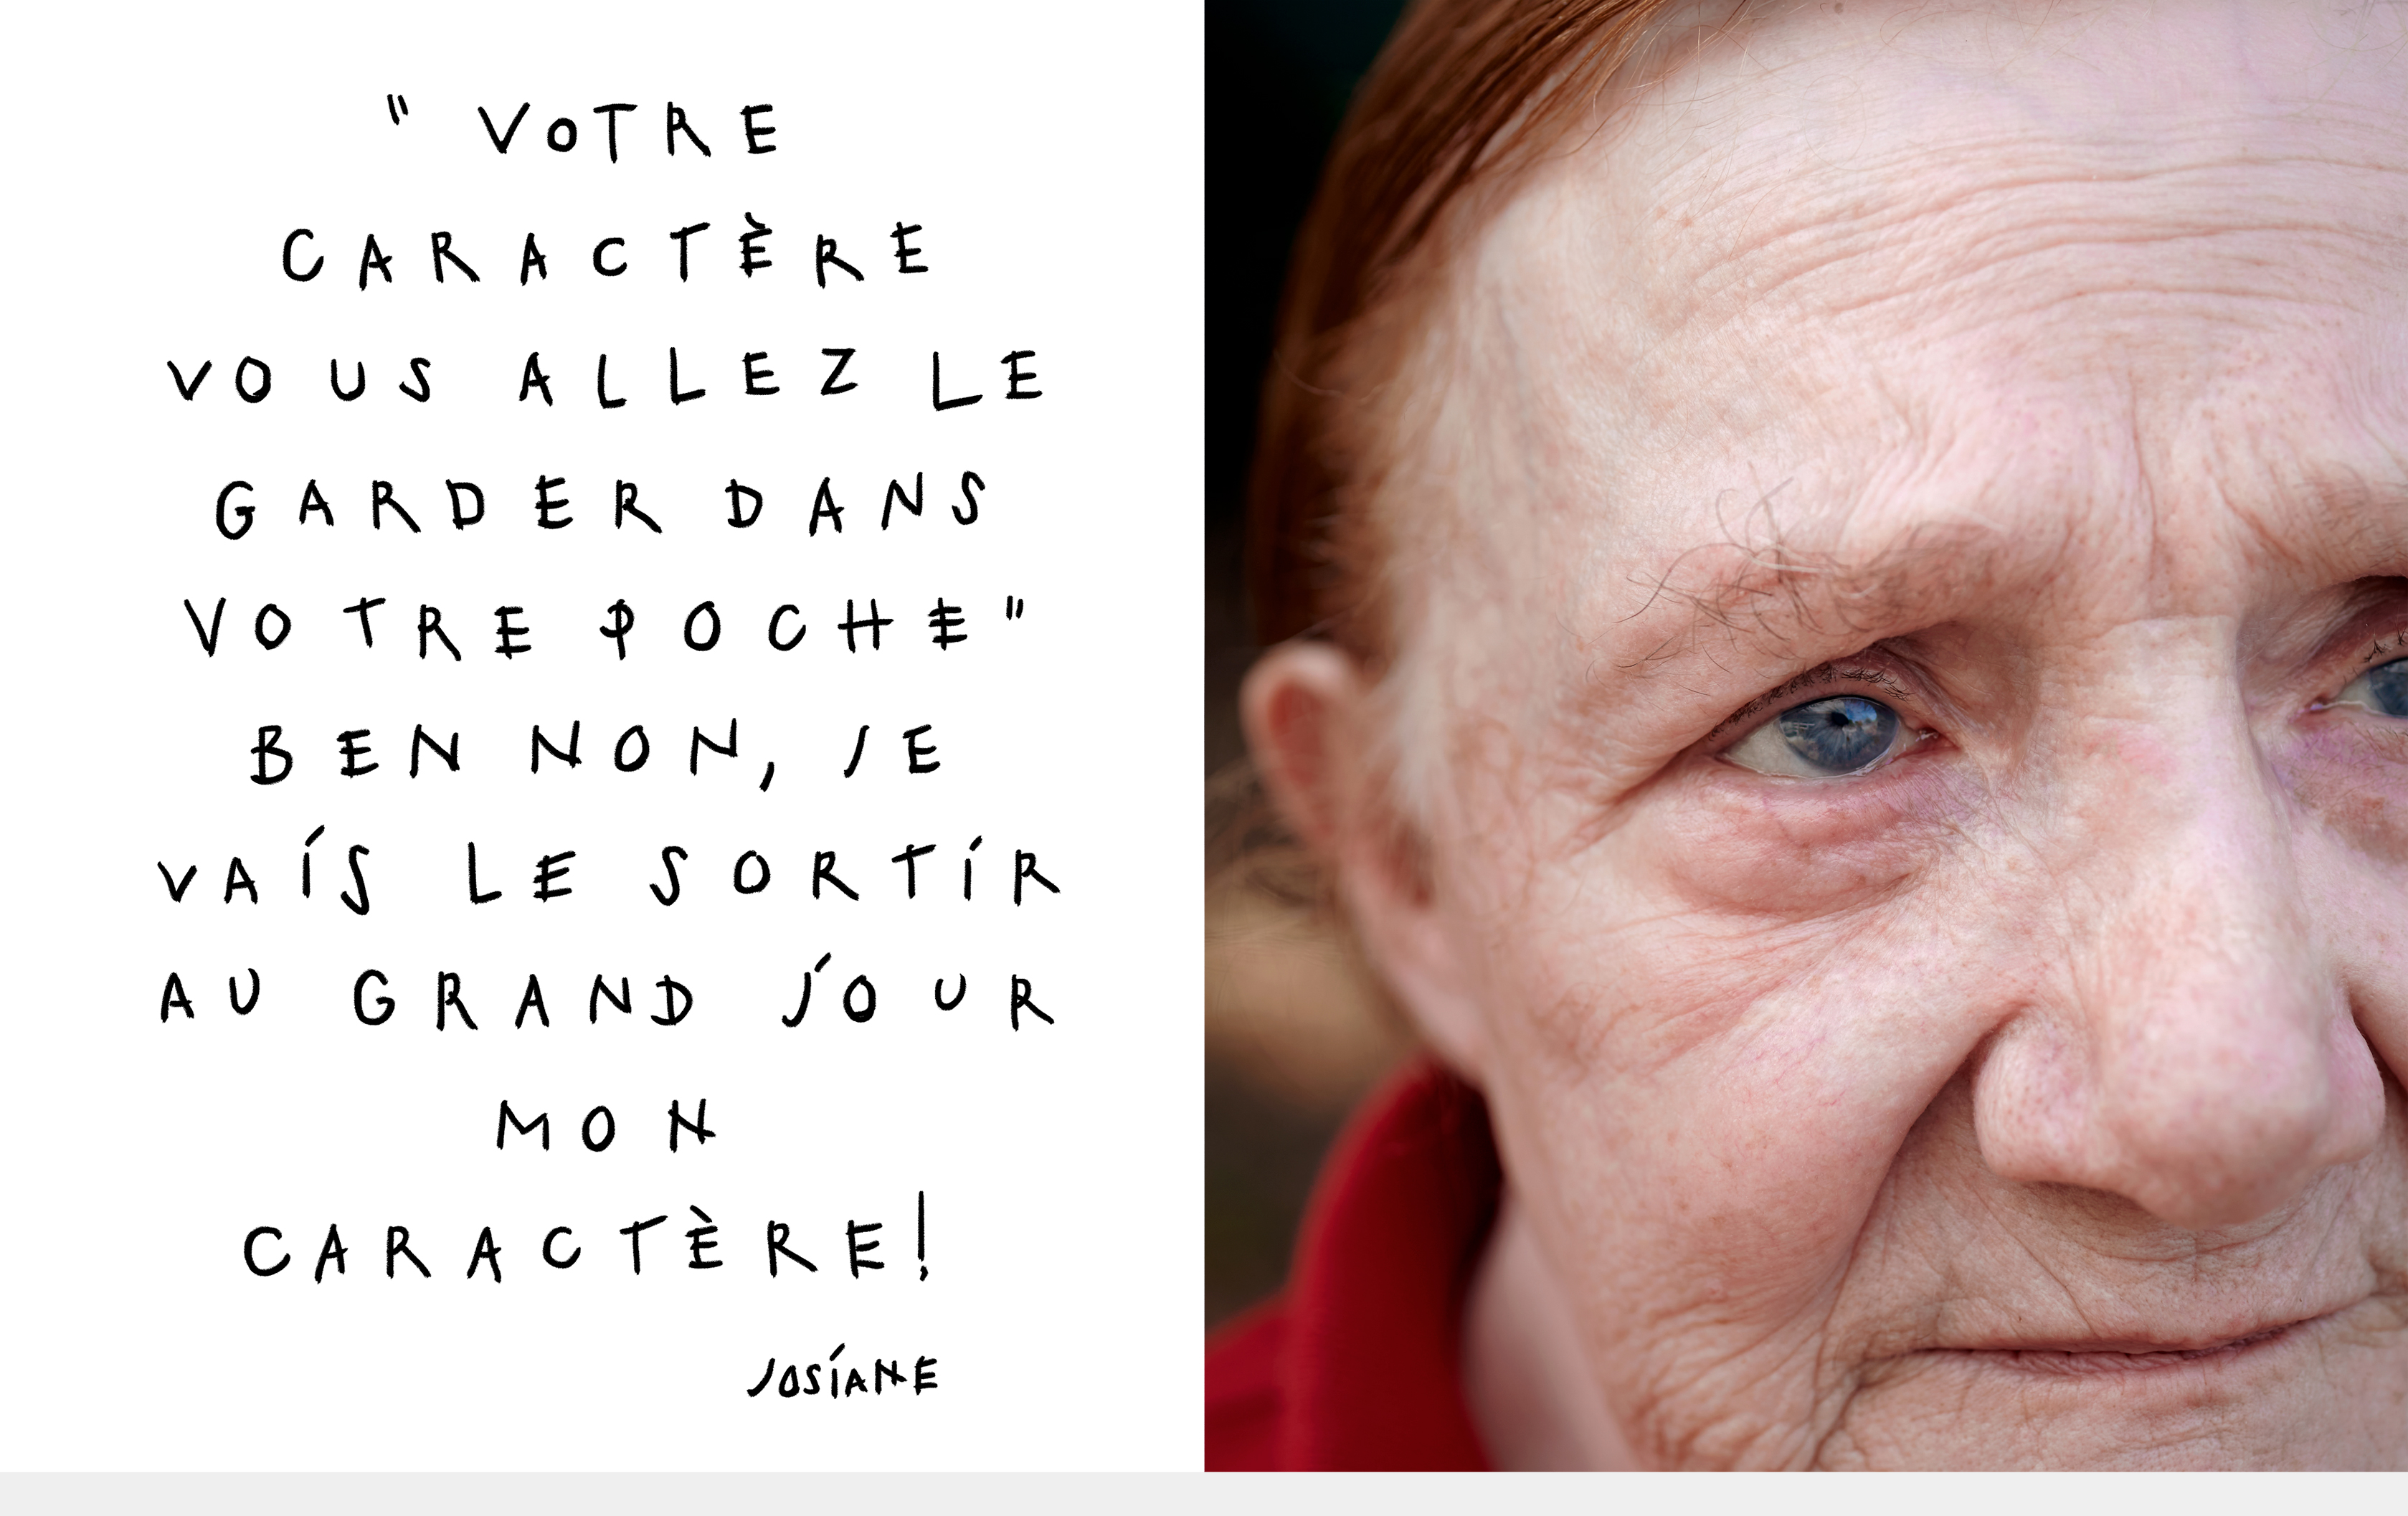 " VOTRE
CARACTÈRE
VOUS ALLEZ LE
GARDER DANS
VOTRE POCHE"
BEN NON, JE
VAÍS LE SORTÍR
AU GRAND JOUR
MON
CARACTÈRE!
JOSÍANE